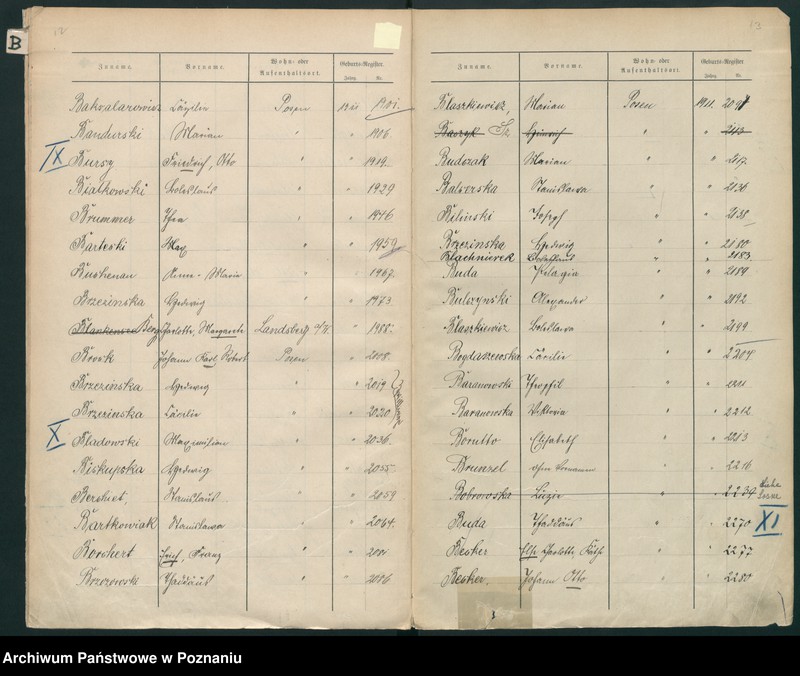 B
12
Zuname. Vorname. Wohn- oder Aufenthaltsort. Geburts-Register Jahrg. Nr.
Bakalarowicz Cäzilia Posen 1911 1901.
Bandurski Marian " " 1906
IX Bursy Friedrich, Otto " " 1919.
Bialkowski Boleslaus " " 1929
Brummer " " 1946
Barteski Max " " 1959
Buchenau Anne-Marie " " 1967.
Brzezinska Hedwig " " 1973
Charlotte, Margarete Landsberg a/W. " 1988.
Brosk Johann Karl Robert Posen " 2008.
Brzezińska Hedwig " " 2019
Brzezinska Cäcilie " " 2020
X Bladowski Maximilian " " 2036.
Biskupska Hedwig " " 2055
Berchet, Stanislaus " " 2059
Bartkowiak Stanislawa " " 2064.
Borchert Erich, Franz " "
Brzozowski Thaddäus " " 2086
13
Zuname. Vorname. Wohn- oder Aufenthaltsort. Geburts-Register Jahrg. Nr.
Blaszkiewicz, Marian Posen 1911.
Heinrich " " 2113
Budzak Marian " " 2117
Balcerska Stanislawa " " 2126
Bilinski Joseph " " 2138
Brzezinska Hedwig " " 2180
Blachnierek " " 2183
Buda Pelagia " " 2189
Bulczynski Alexander " " 2192
Blaszkiewicz Boleslawa " " 2199
Bogdaszewska Cäcilie " " 2204
Baranowski Theophil " " 2211
Baranowska Viktoria " " 2212
Borutto Elisabeth " " 2213
Brunzel ohne Vornamen " " 2216
Bobrowska Luzie " " 2239 Siehe
Buda Thaddäus " " 2270 XI
Besker Else Charlotte Käthe " " 2277
Besker, Johann Otto " " 2280
3
Archiwum Państwowe w Poznaniu